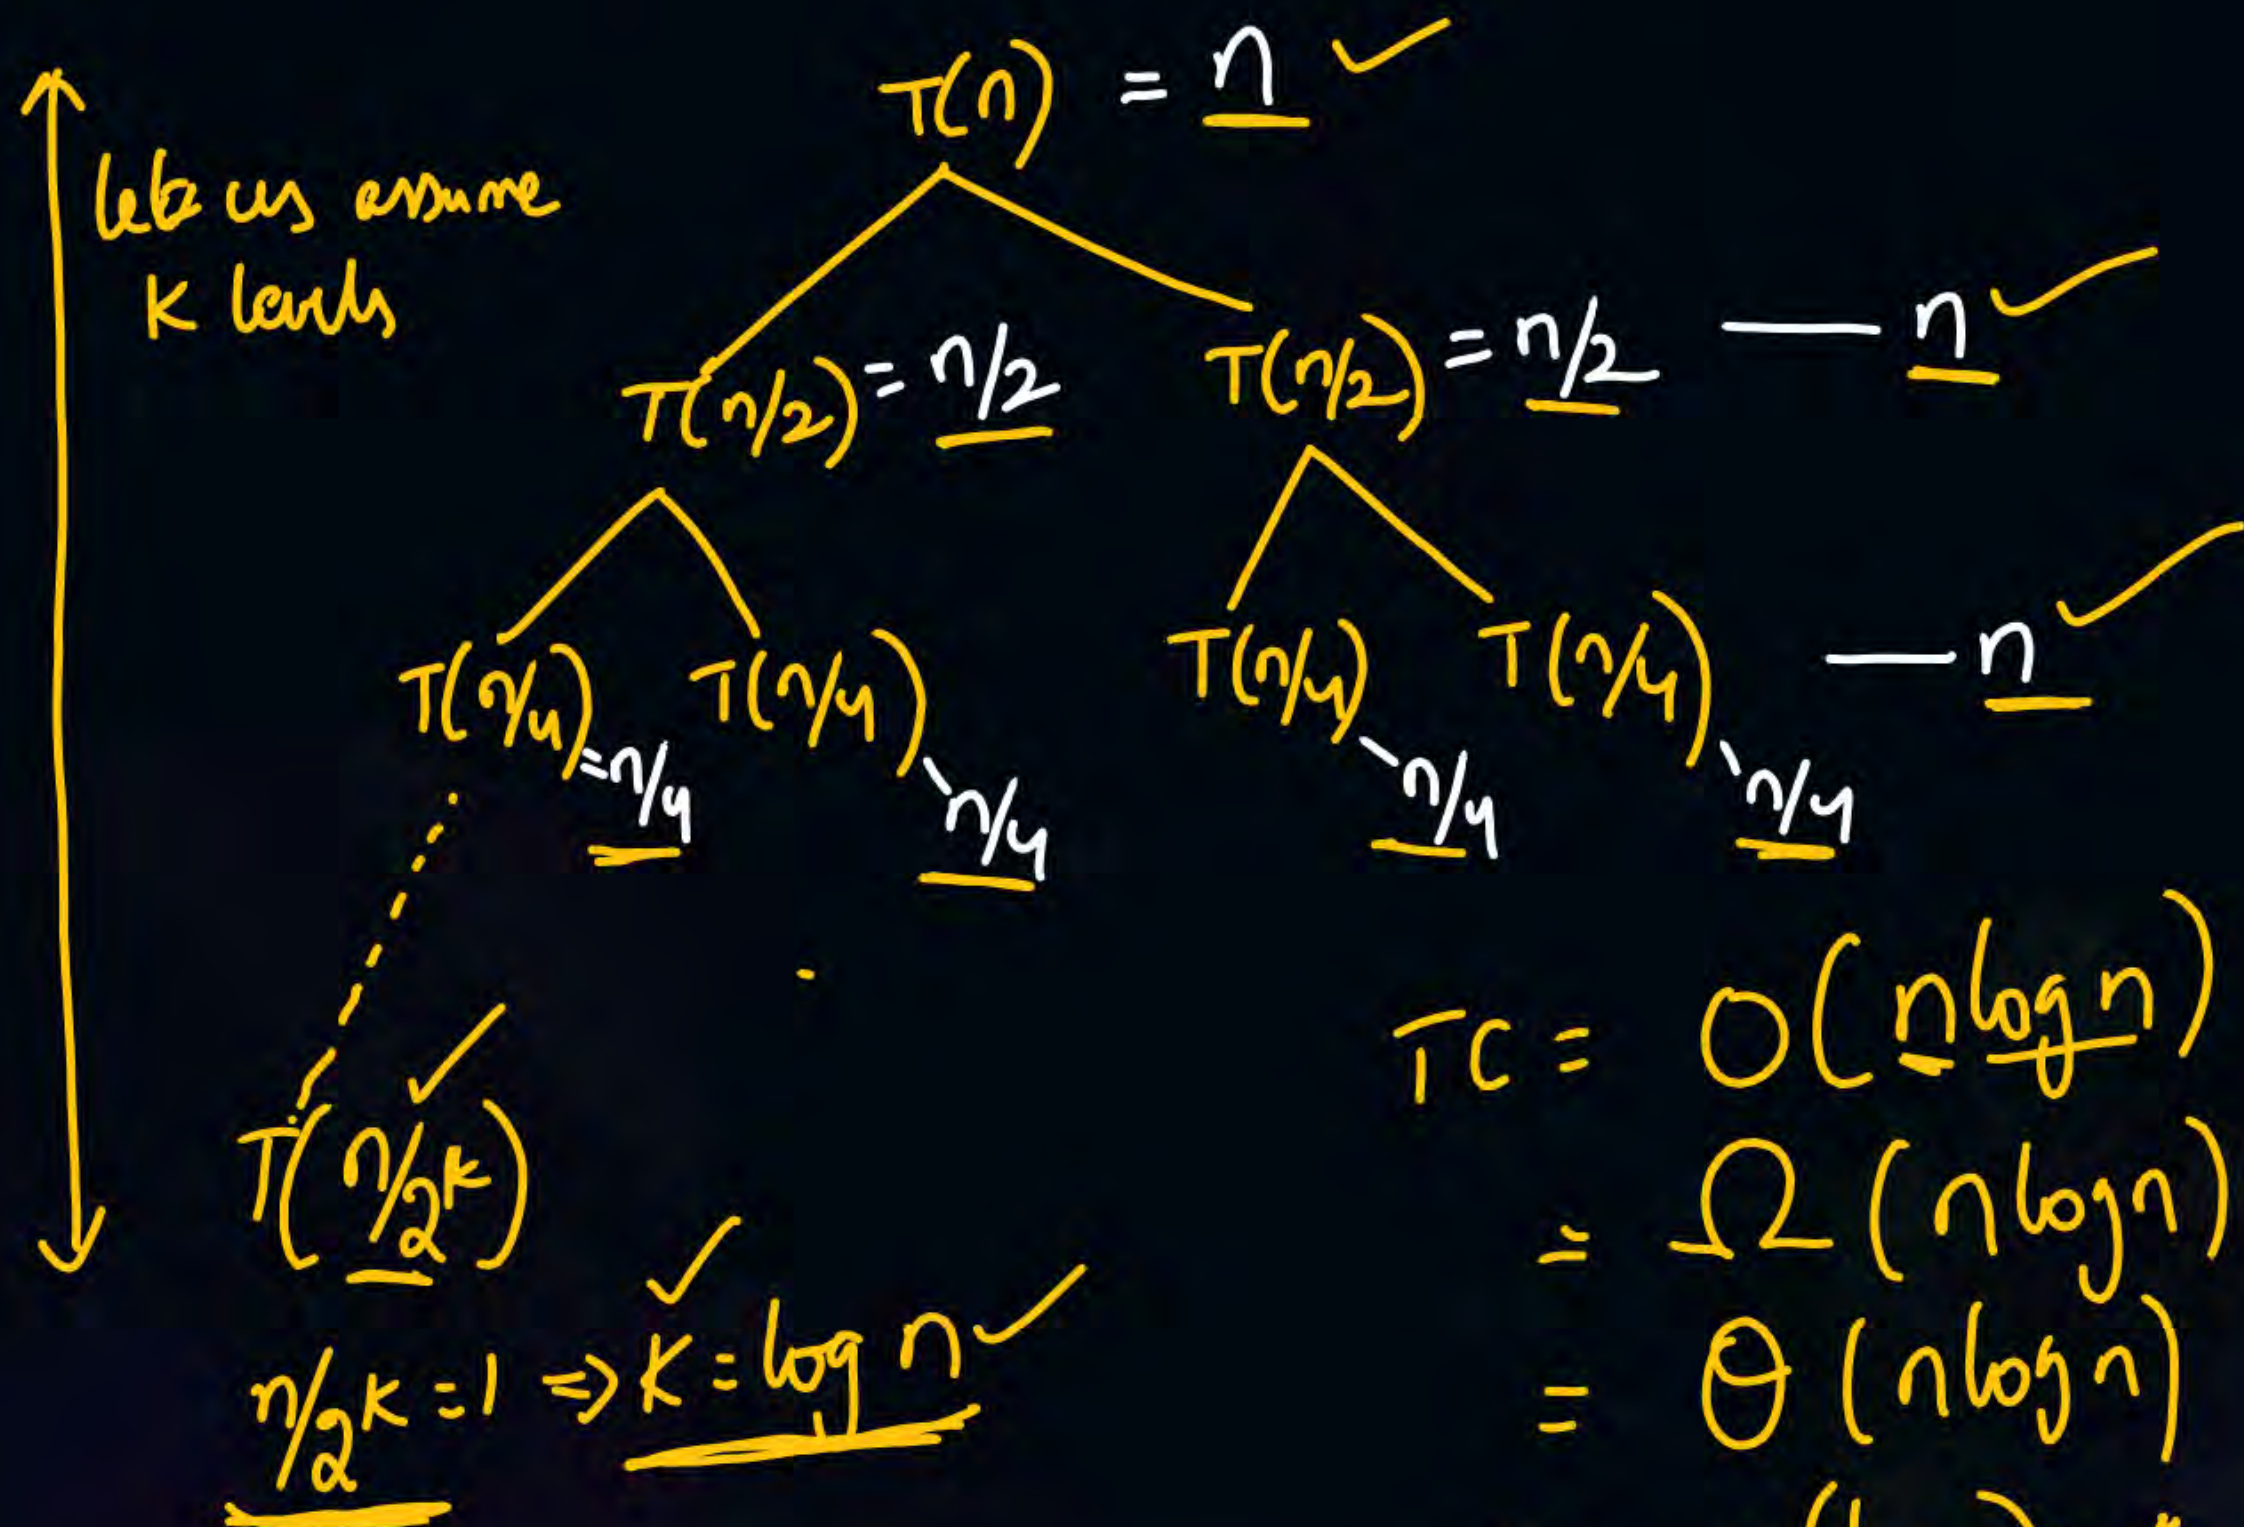 T(n) = n ✓
let us assume
K levels
T(n/2) = n/2 T(n/2) = n/2 — n ✓
T(n/4) = n/4 T(n/4) - n/4 T(n/4) - n/4 T(n/4) - n/4 — n ✓
T(n/2^k) ✓
n/2^k = 1 => K = log n ✓
TC = O(n log n)
= Ω(n log n)
= Θ(n log n)